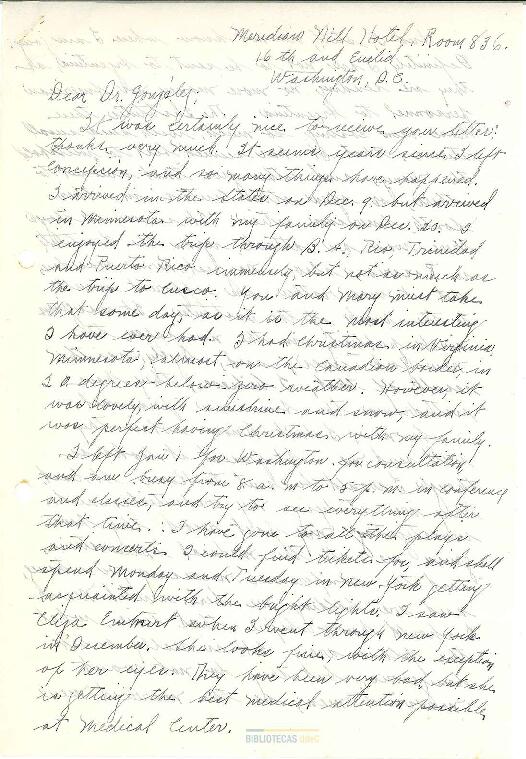 Meridian Hill Hotel, Room 836.
16 th and Euclid
Washington, D.C.
Dear Dr. González:
It was certainly nice to receive your letter:
thanks very much. It seems years since I left
Concepcion, and so many things have happened.
I arrived in the States on Dec. 9 but arrived
in Minnesota with my family on Dec. 20. I
enjoyed the trip through B. A. Rio, Trinidad
and Puerto Rico immensely, but not as much as
the trip to Cusco. You and Mary must take
that some day, as it is the most interesting
I have ever had. I had Christmas in Virginia,
Minnesota, almost on the Canadian border in
degrees below zero weather. However, it
was lovely with sunshine and snow, and it
was perfect having Christmas with my family.
I left Jan. 1 for Washington for consultation
and are busy from 8 a. m to 5 p. m. in conference
and classes, and try to see everything after
that time. I have gone to all the plays
and concerts I could find tickets for, and shall
spend Monday and Tuesday in New York getting
acquainted with the bright lights. I saw
when I went through New York
in December. She looks fine, with the exception
of her eyes. They have been very bad, but she
is getting the best medical attention possible
at Medical Center.
BIBLIOTECAS UdeC